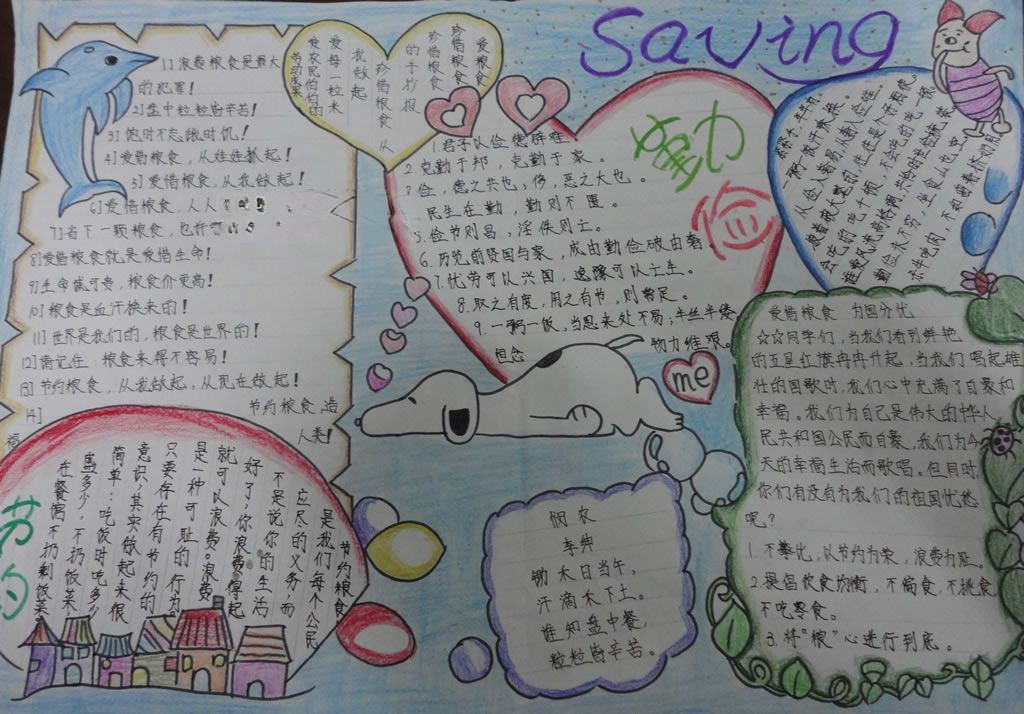 Saving
1] 浪费粮食是最大
的犯罪!
2] 盘中粒粒皆辛苦!
3] 饱时不忘饿时饥!
4] 爱惜粮食,从娃娃抓起!
5] 爱惜粮食,从我做起!
6] 爱惜粮食,人人
7] 省下一颗粮食,
8] 爱惜粮食就是爱惜生命!
9] 生命诚可贵,粮食价更高!
10] 粮食是血汗换来的!
11] 世界是我们的,粮食是世界的!
12] 需记住:粮食来得不容易!
13] 节约粮食,从我做起,从现在做起!
14]
节约粮食 造
福
人类!
爱粮食
珍惜粮食
珍惜粮食
的手抄报
珍惜粮食 从
我做起
爱每一粒米
爱农民伯伯的
劳动成果
勤力
俭
1. 君子以俭德辟难
2. 克勤于邦,克勤于家。
俭,德之共也,侈,恶之大也。
民生在勤,勤则不匮。
5. 俭节则昌,淫佚则亡。
6. 历览前贤国与家,成由勤俭破由奢。
7. 忧劳可以兴国,逸豫可以亡生。
8. 取之有度,用之有节,则常足。
9. 一粥一饭,当思来处不易;半丝半缕
恒念
物力维艰。
me
从俭入奢易,从奢入俭难。
谁要风流高格调,共怜时世俭梳妆。
勤俭永不穷,坐食山也空。
爱惜粮食 为国分忧
☆☆同学们,当我们看到鲜艳
的五星红旗冉冉升起,当我们唱起雄
壮的国歌时,我们心中充满了自豪和
幸福。我们为自己是伟大的中华人
民共和国公民而自豪,我们为今
天的幸福生活而歌唱。但同时,
你们有没有为我们的祖国忧愁
呢?
1. 不攀比,以节约为荣,浪费为耻。
2. 提倡饮食均衡,不偏食,不挑食,
不吃零食。
3. 将“粮”心进行到底。
节约
节约粮食
是我们每个公民
应尽的义务,而
不是说你的生活
好了,你浪费得起
就可以浪费。浪费
是一种可耻的行为。
只要存在有节约的
意识,其实做起来很
简单:吃饭时吃多少
盛多少,不扔饭菜,
在餐馆不扔剩饭菜
悯农
李绅
锄禾日当午,
汗滴禾下土。
谁知盘中餐,
粒粒皆辛苦。